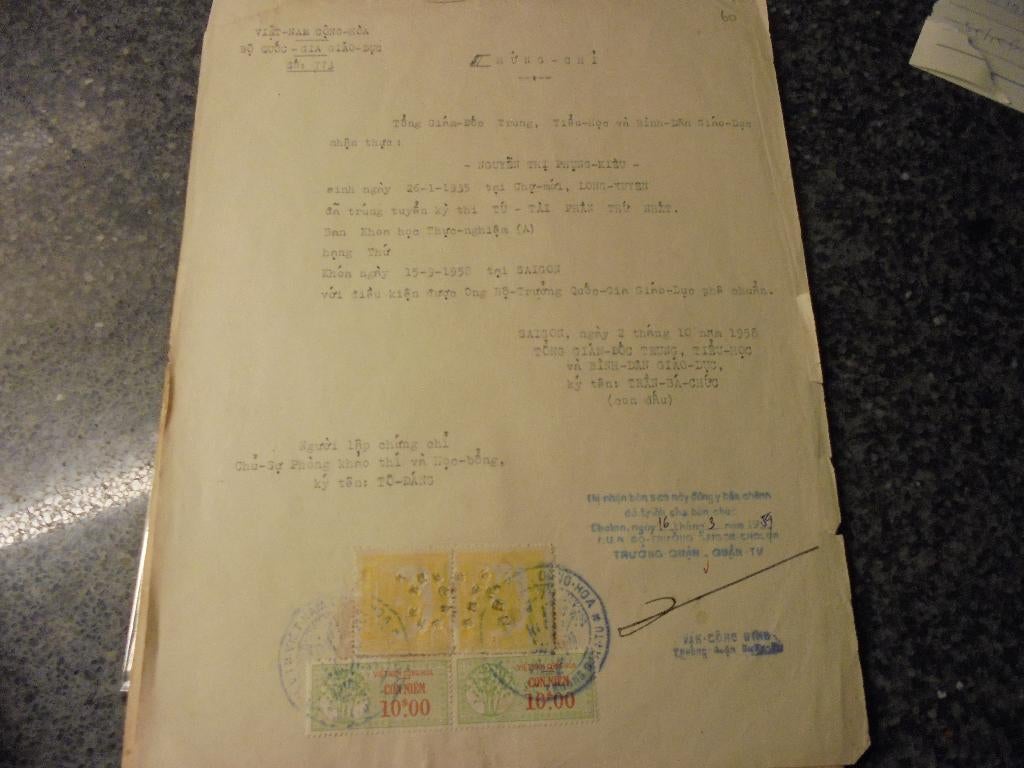 60
VIỆT-NAM CỘNG-HÒA
BỘ QUỐC-GIA GIÁO-DỤC
SỐ: 771
CHỨNG-CHỈ
Tổng Giám-Đốc Trung, Tiểu-Học và Bình-Dân Giáo-Dục
nhận thực:
- NGUYỄN THỊ PHỤNG-KIỀU -
sinh ngày 26-1-1935 tại Chợ-mới, LONG-XUYÊN
đã trúng tuyển kỳ thi TÚ - TÀI PHẦN THỨ NHẤT.
Ban Khoa học Thực-nghiệm (A)
hạng Thứ
Khóa ngày 15-9-1958 tại SAIGON
với điều kiện được Ông Bộ-Trưởng Quốc-Gia Giáo-Dục phê chuẩn.
SAIGON, ngày 2 tháng 10 năm 1958
TỔNG GIÁM-ĐỐC TRUNG, TIỂU-HỌC
và BÌNH-DÂN GIÁO-DỤC,
ký tên: TRẦN-BÁ-CHỨC
(con dấu)
Người lập chứng chỉ
Chủ-Sự Phòng khảo thí và Học-bổng,
ký tên: TÔ-ĐÁNG
Thị nhận bản sao này đúng y bản chánh
đã trình cho bổn chức
Cholon, ngày 16 tháng 3 năm 1959
TRƯỞNG QUẬN, QUẬN TƯ
VĂN-CÔNG
VIỆT-NAM CỘNG-HÒA
CON NIÊM
10$00
VIỆT-NAM CỘNG-HÒA
CON NIÊM
10$00